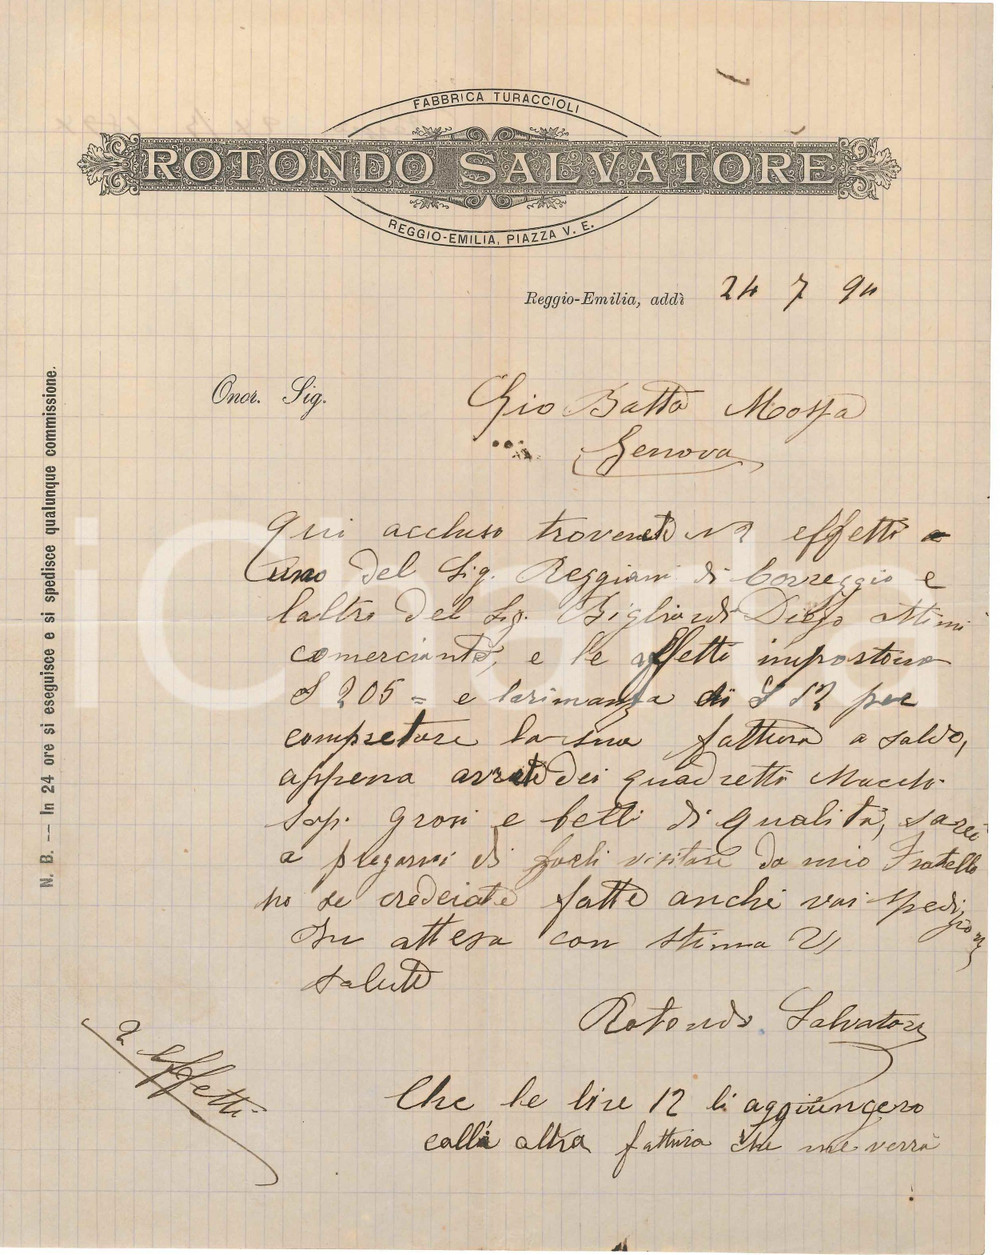 FABBRICA TURACCIOLI
ROTONDO SALVATORE
REGGIO-EMILIA, PIAZZA V. E.
Reggio-Emilia, addì 24 7 94
Onor. Sig. Gio Batta Mossa
Genova
N. B. -- In 24 ore si eseguisce e si spedisce qualunque commissione.
Qui accluso troverete N 2 effetti
uno del Sig. Reggiani di Correggio e
laltro del Sig. Bigliardi Diego ottimi
comercianti, e le effetti importano
£ 205 = e la rimanza di £ 12 per
compretare la sua fattura a saldo,
appena avrete dei quadretti Macchi
sop. grosi e belli di qualità, sarei
a pregarvi di farli visitare da mio Fratello
no se credeiate fatte anchi voi spedizioni
In attesa con stima Vi
saluto
Rotondo Salvatore
2 Effetti
Che le lire 12 li aggiungero
colla altra fattura che me verrà
iCharta